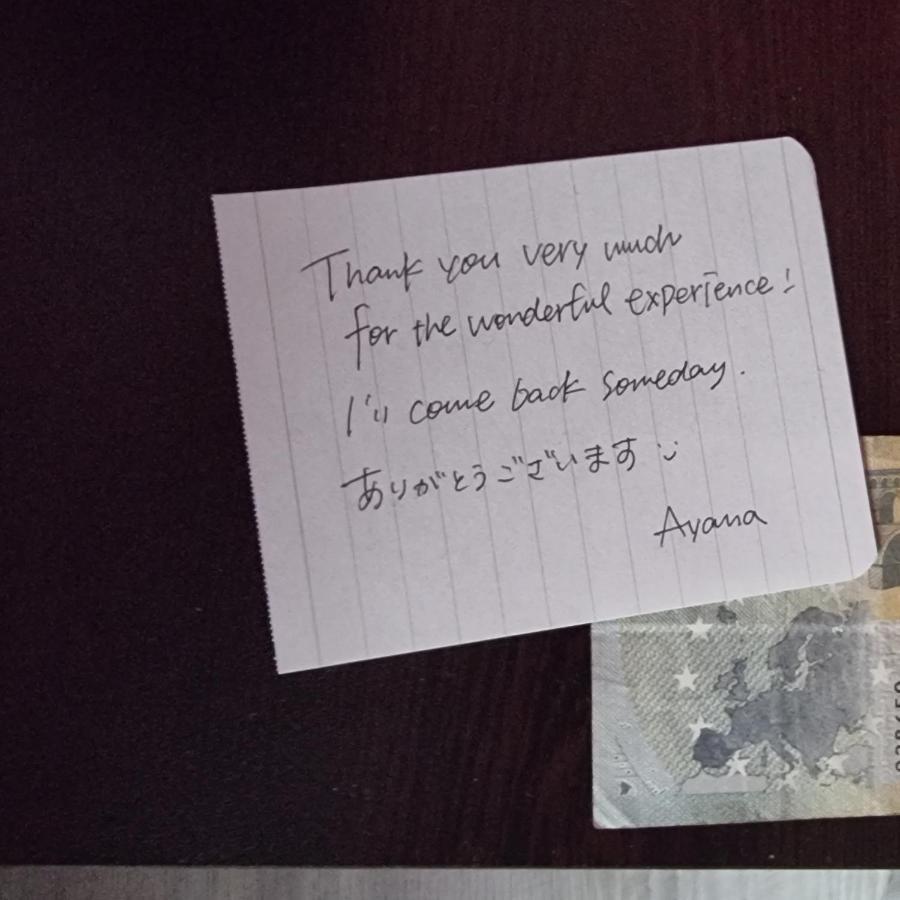 Thank you very much
for the wonderful experience!
I'll come back someday.
ありがとうございます :)
Ayana